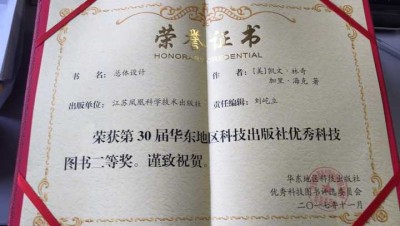 荣誉证书
HONORARY CREDENTIAL
书 名：总体设计
作 者：[美]凯文·林奇
加里·海克 著
出版单位：江苏凤凰科学技术出版社
责任编辑：刘屹立
荣获第30届华东地区科技出版社优秀科技
图书二等奖。谨致祝贺。
华东地区科技出版社
优秀科技图书评选委员会
二〇一七年十一月